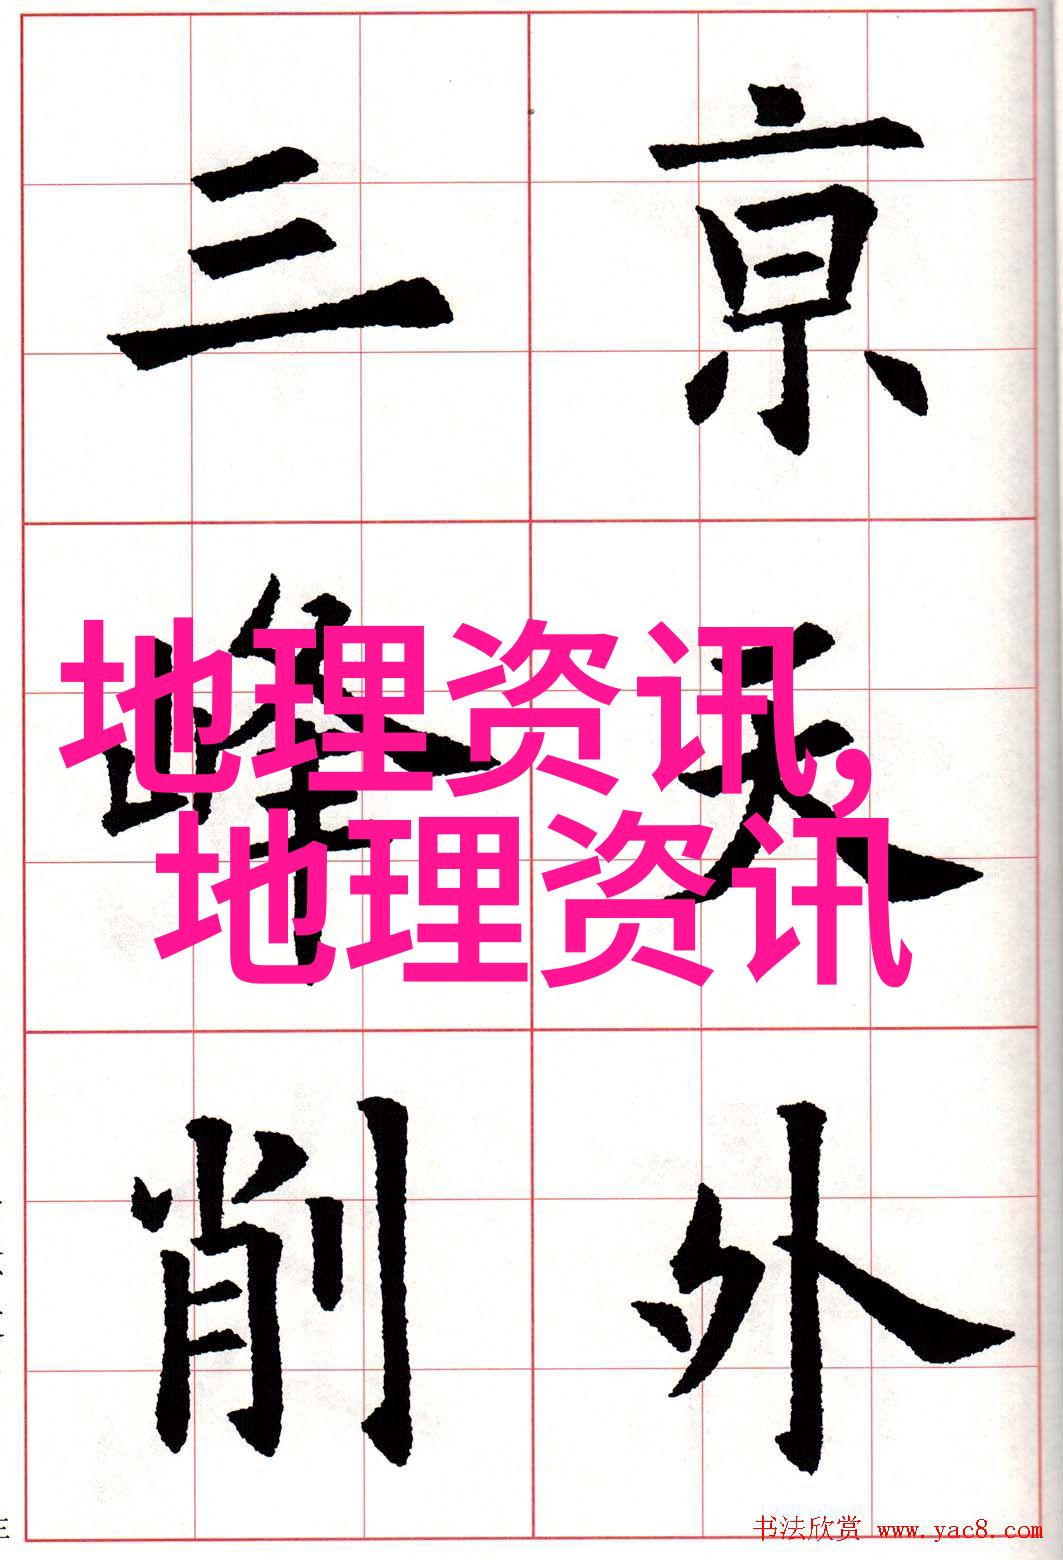 亰天外
三峰削
地理资讯,
地理资讯
书法欣赏 www.yac8.com